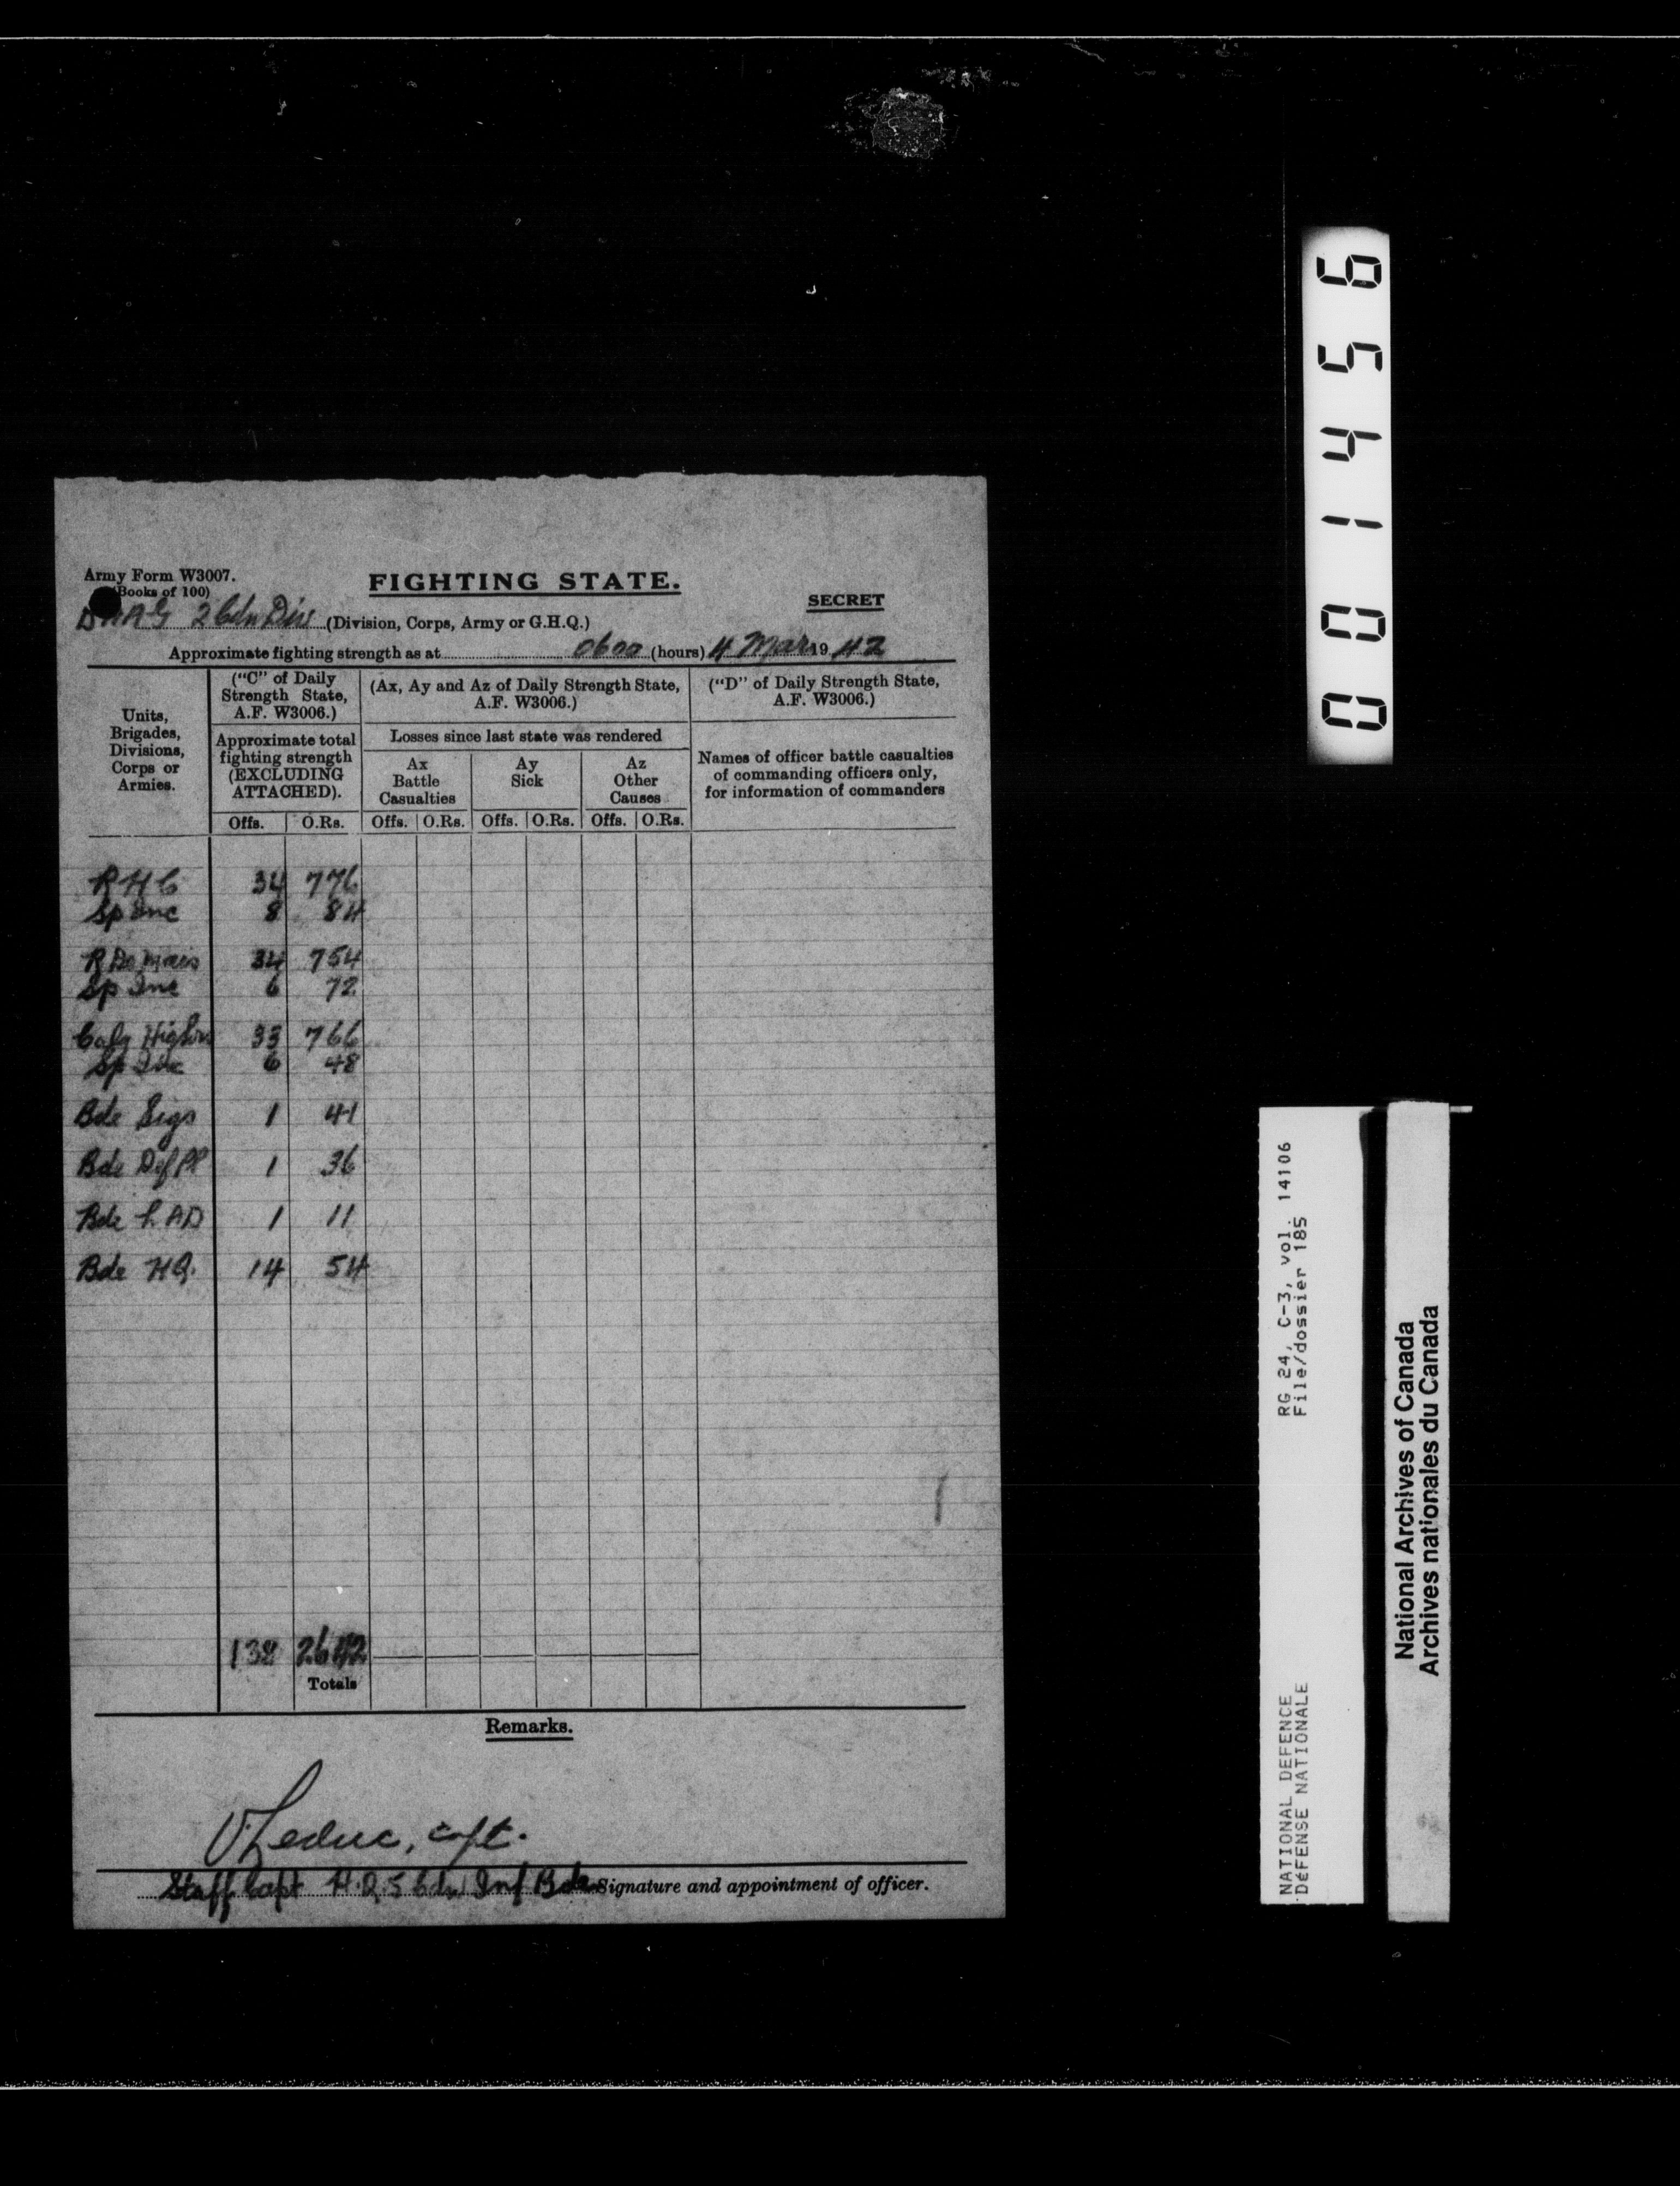 Army Form W3007.
(Books of 100)
FIGHTING STATE.
SECRET
DAAG 2 Cdn Div (Division, Corps, Army or G.H.Q.)
Approximate fighting strength as at 0600 (hours) 4 Mar 19 42
Units, Brigades, Divisions, Corps or Armies.
("C" of Daily Strength State, A.F. W3006.)
(Ax, Ay and Az of Daily Strength State, A.F. W3006.)
("D" of Daily Strength State, A.F. W3006.)
Approximate total fighting strength (EXCLUDING ATTACHED).
Losses since last state was rendered
Names of officer battle casualties of commanding officers only, for information of commanders
Ax Battle Casualties
Ay Sick
Az Other Causes
Offs. O.Rs. Offs. O.Rs. Offs. O.Rs. Offs. O.Rs.
RHC 34 776
Sp Inc 8 84
R De Mais 34 754
Sp Inc 6 72
Calg Highrs 33 766
Sp Inc 6 48
Bde Sigs 1 41
Bde Def Pl 1 36
Bde LAD 1 11
Bde HQ. 14 54
138 2642
Totals
Remarks.
Leduc, capt.
Staff Capt H.Q. 5 Cdn Inf Bde Signature and appointment of officer.
001456
RG 24, C-3, vol. 14106
File/dossier 185
NATIONAL DEFENCE
DÉFENSE NATIONALE
National Archives of Canada
Archives nationales du Canada